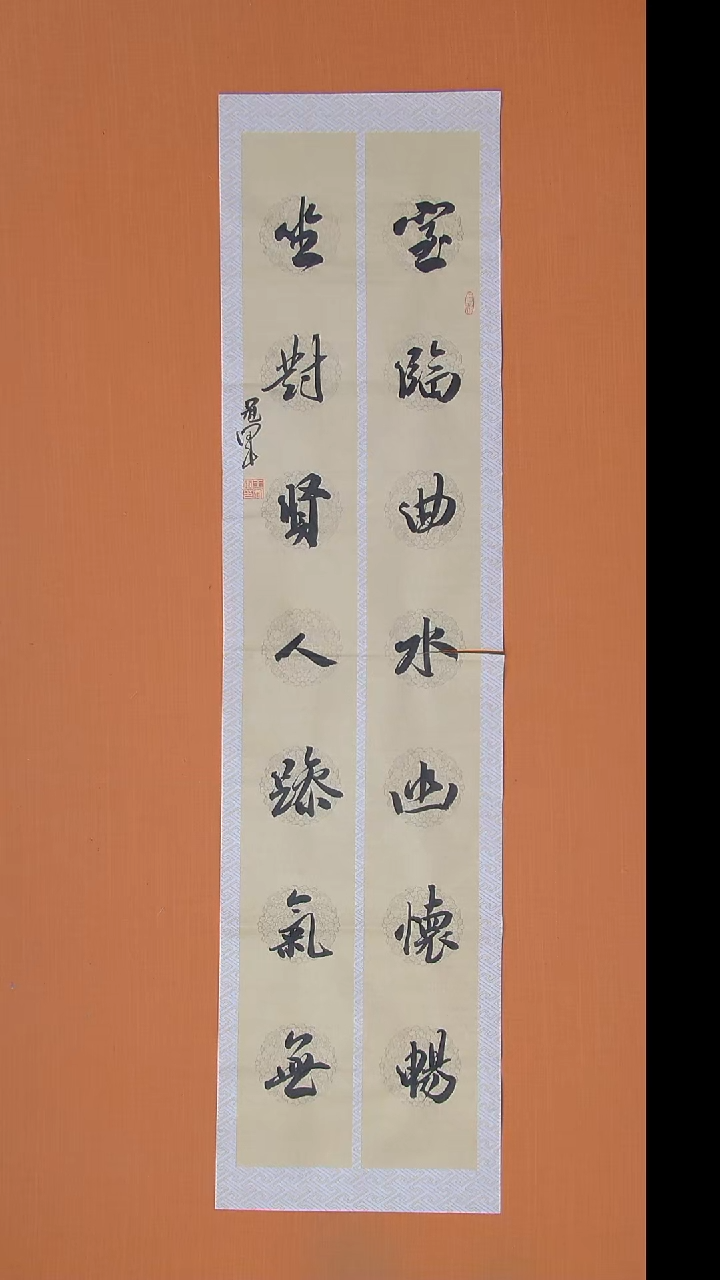 室臨曲水幽懷暢
坐對賢人躁氣無